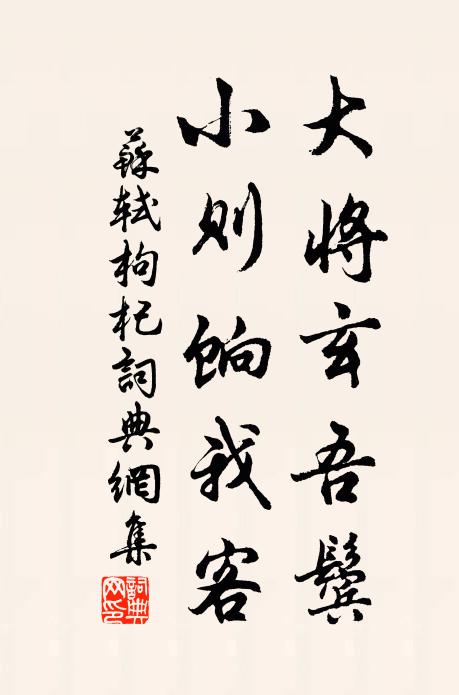 大將玄吾鬢
小則餉我客
蘇軾枸杞詞典網集
詞典網印